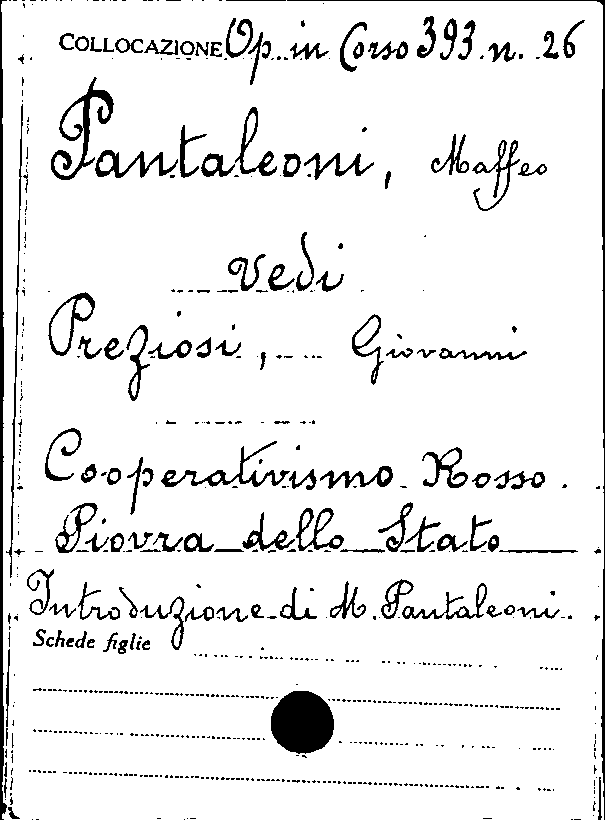 COLLOCAZIONE Op. in Corso 393. n. 26
Pantaleoni, Maffeo
vedi
Preziosi, Giovanni
Cooperativismo Rosso.
Piovra dello Stato
Introduzione di M. Pantaleoni.
Schede figlie